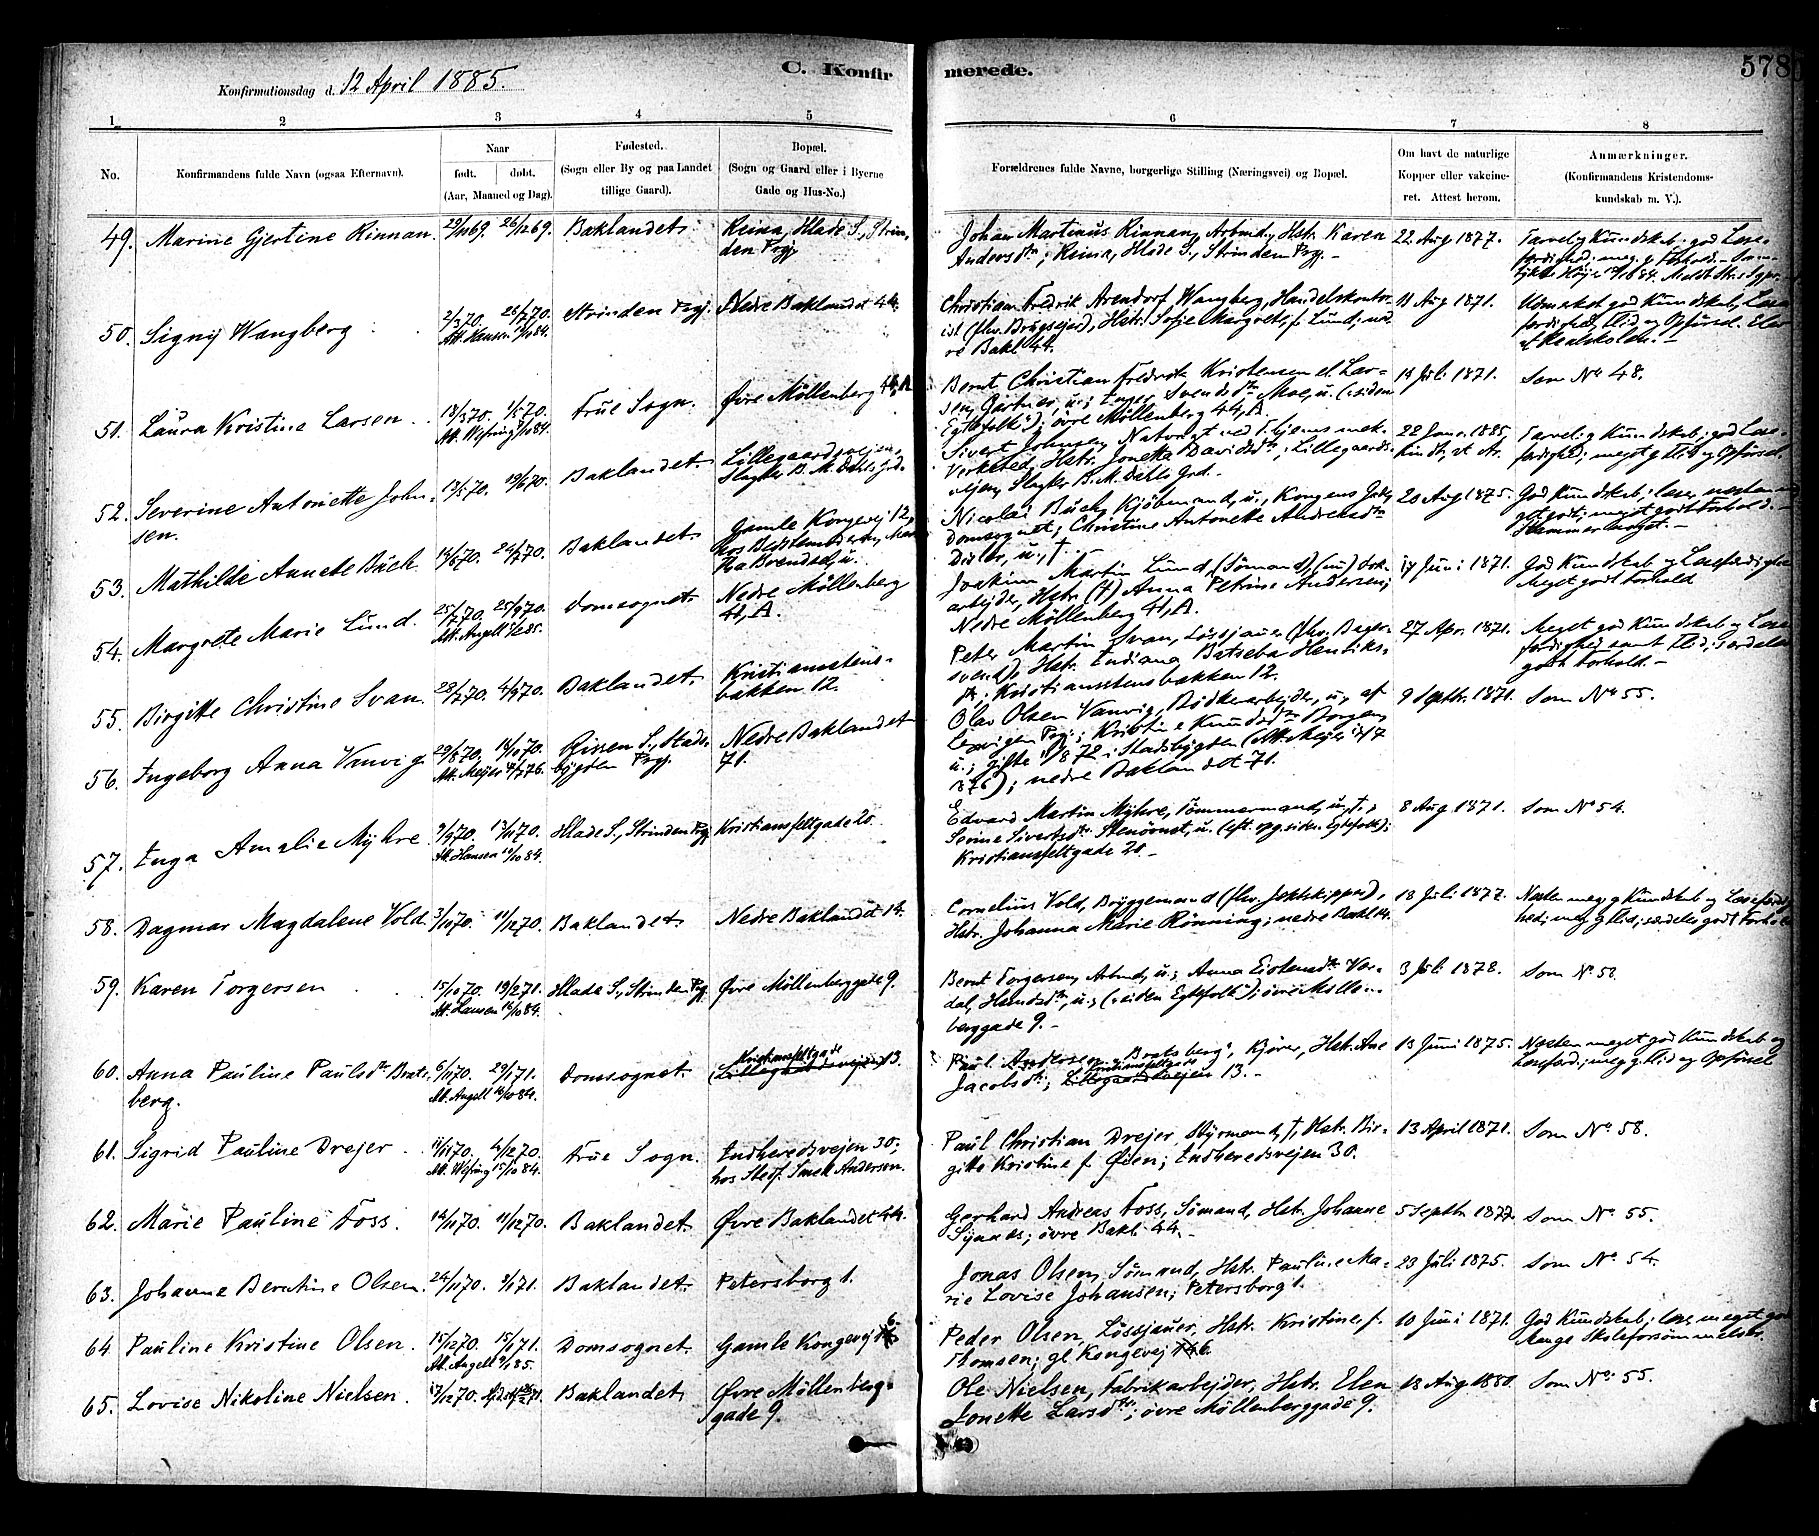 C. Konfirmerede.
578
Konfirmationsdag d. 12 April 1885.
1 2 3 4 5 6 7 8
No.
Konfirmandens fulde Navn (ogsaa Efternavn).
Naar
født. døbt.
(Aar, Maaned og Dag).
Fødested.
(Sogn eller By og paa Landet
tillige Gaard).
Bopæl.
(Sogn og Gaard eller i Byerne
Gade og Hus-No.)
Forældrenes fulde Navne, borgerlige Stilling (Næringsvei) og Bopæl.
Om havt de naturlige
Kopper eller vakcine-
ret. Attest herom.
Anmærkninger.
(Konfirmandens Kristendoms-
kundskab m. V.).
49. Marine Gjertine Rinnan. 29/11 69. 26/12 69. Baklandet.
Reina, Hlade S., Strin-
den Prgj.
Johan Martinus Rinnan, Arbmd., Hstr. Karen
Andersdtr; Reina, Hlade S., Strinden Prgj. –
22. Aug 1877.
Tarvelig Kundskab; god Læse-
færdighed; meg. g.
50. Signy Wangberg 2/3 70. 26/7 70. Strinden Prgj. Nedre Baklandet 44.
Christian Fredrik Arendorf Wangberg, Handelskontor-
ist (fhv. Brugsejer), Hstr. Sofie Margrete, f. Lund; ned-
re Bakl. 44.
11 Aug 1871.
Udmærket god Kundskab, Læse-
færdighed, Flid og Opførsel. Elev
af Realskolen. –
51. Laura Kristine Larsen 13/3 70. 1/5 70. Frue Sogn. Øvre Møllenberg 44, A
Bernt Christian Fredrik Kristensen el. Lar-
sen, Gartner, u.; Inger Svendsdtr Moe, u. (siden
Egtefolk); øvre Møllenberg 44, A.
14 Juli 1871. Som No 48.
52. Severine Antonette John-
sen. 13/5 70. 19/6 70. Baklandet.
Lillegaardsvejen,
Slagter B. M. Dahls Grd.
Sivert Johnsen, Natvagt ved T.hjems mek.
Verksted, Hstr. Jonetta Davidsdtr; Lillegaards-
vejen, Slagter B. M. Dahls Grd.
22 Jan. 1885,
Tarvelig Kundskab; god Læse-
færdighed; meget g. Flid og Opførsel.
53. Mathilde Annete Buch. 14/6 70. 24/7 70. Baklandet.
Gamle Kongevej 12,
hos Bedstemoderen,
Nicolai Buch, Kjøbmand, u., Kongens Gade,
Domsognet; Christine Antonette Andreasdtr
u., †.
20 Aug 1875.
God Kundskab; læser næsten meget godt; meget godt Forhold. –
54. Margrete Marie Lund. 25/7 70. 25/9 70.
Att. Angell 85. Domsognet. Nedre Møllenberg
41, A.
Joakim Martin Lund, (Sømand), (nu) Dok-
arbejder, Hstr. (†) Anna Petrine Andersen;
Nedre Møllenberg 41, A.
14 Juni 1871.
God Kundskab og Læsefærdighed.
Meget godt Forhold
55. Birgitte Christine Svan. 28/7 70. 4/9 70. Baklandet. Kristianstens-
bakken 12.
Peter Martin Svan, Løssjauer (fhv. Bager-
svend), Hstr. Indiana Batseba Henriks-
dtr; Kristianstensbakken 12.
27 Apr. 1871.
Meget god Kundskab og Læse-
færdighed samt Flid; særdeles
godt Forhold. –
56. Ingeborg Anna Vanvig. 29/8 70.
Att. Mejer 76. Rissen S., Stads-
bygden Prgj. Nedre Baklandet
71.
Olav Olsen Vanvig, Bødkerarbejder, u., af
Lexvigen Prgj.; Kristine Knudsdtr Borgen,
u.; gifte 1872 i Stadsbygden (Att. Mejer
1876); nedre Baklandet 71.
9 Septbr. 1871. Som No 55.
57. Inga Amalie Myhre. 9/9 70. 13/11 70.
Att. Hansen 14/10 84. Hlade S., Strinden Prgj. Kristiansfeltgade 20.
Edvard Martin Myhre, Tømmermand, u., †,
Serine Sivertsdtr Stenørnet, u. (eft. opg. siden Egtefolk);
Kristiansfeltgade 20. –
8 Aug 1871. Som No 54.
58. Dagmar Magdalene Vold. 3/10 70. 11/12 70. Baklandet. Nedre Baklandet 14.
Cornelius Vold, Bryggemand (fhv. Jektskipper),
Hstr. Johanna Marie Rønning; nedre Bakl. 14.
18 Juli 1877.
Næsten meg. g. Kundskab og Læsefærdig-
hed; meg. g. Flid; særdeles godt Forhold
59. Karen Torgersen 15/10 70. 19/2 71.
Att. Hansen 14/10 84. Hlade S., Strinden Prgj. Øvre Møllenberggade 9.
Bernt Torgersen, Arbmd., u.; Anna Eistensdtr Ver-
dal, u.; (siden Egtefolk); øvre Møllen-
berggade 9. –
3 Juli 1872. Som No 58.
60. Anna Pauline Paulsdtr Brats-
berg. 6/11 70. 29/1 71.
Att. Angell 16/10 84. Domsognet.
Kristiansfeltgade
(Lillegaardsvejen) 13.
Paul Andersen Bratsberg, Kjører, Hstr. Ane
Jacobsdtr; Kristiansfeltgade Lillegaardsvejen 13. –
13 Juni 1875.
Næsten meget god Kundskab og
Læsefærd.; meg. g. Flid og Opførsel
61. Sigrid Pauline Drejer 11/11 70. 4/12 70.
Att. Wefring 15/10 84. Frue Sogn. Indheredsvejen 30;
hos Stedf. Smed Andersen.
Paul Christian Drejer, Styrmand, †, Hstr. Bir-
gitte Kristine f. Øien; Indheredsvejen 30.
13 April 1871. Som No 58.
62. Marie Pauline Foss. 14/11 70. 11/12 70. Baklandet. Øvre Baklandet 44.
Gerhard Andreas Foss, Sømand, Hstr. Johanne
; øvre Bakl. 44. –
5 Septbr. 1877. Som No 55.
63. Johanne Berntine Olsen. 24/11 70. 8/1 71. Baklandet. Petersborg 1.
Jonas Olsen, Sømand, Hstr. Pauline Ma-
rie Lovise Johansen; Petersborg 1.
23 Juli 1875. Som No 54.
64. Pauline Kristine Olsen. 15/12 70. 15/1 71.
Att. Angell 85. Domsognet. Gamle Kongevej 6
Peder Olsen, Løssjauer, Hstr. Kristine, f.
Thomsen; gl. Kongevej 6.
10 Juni 1871.
God Kundskab; læser meget godt
Mange Skoleforsømmelser.
65. Lovise Nikoline Nielsen. 17/12 70. Baklandet. Øvre Møllenberg-
gade 9.
Ole Nielsen, Fabrikarbejder, Hstr. Elen
Jonette Larsdtr; øvre Møllenberggade 9.
18 Aug 1880. Som No 55.